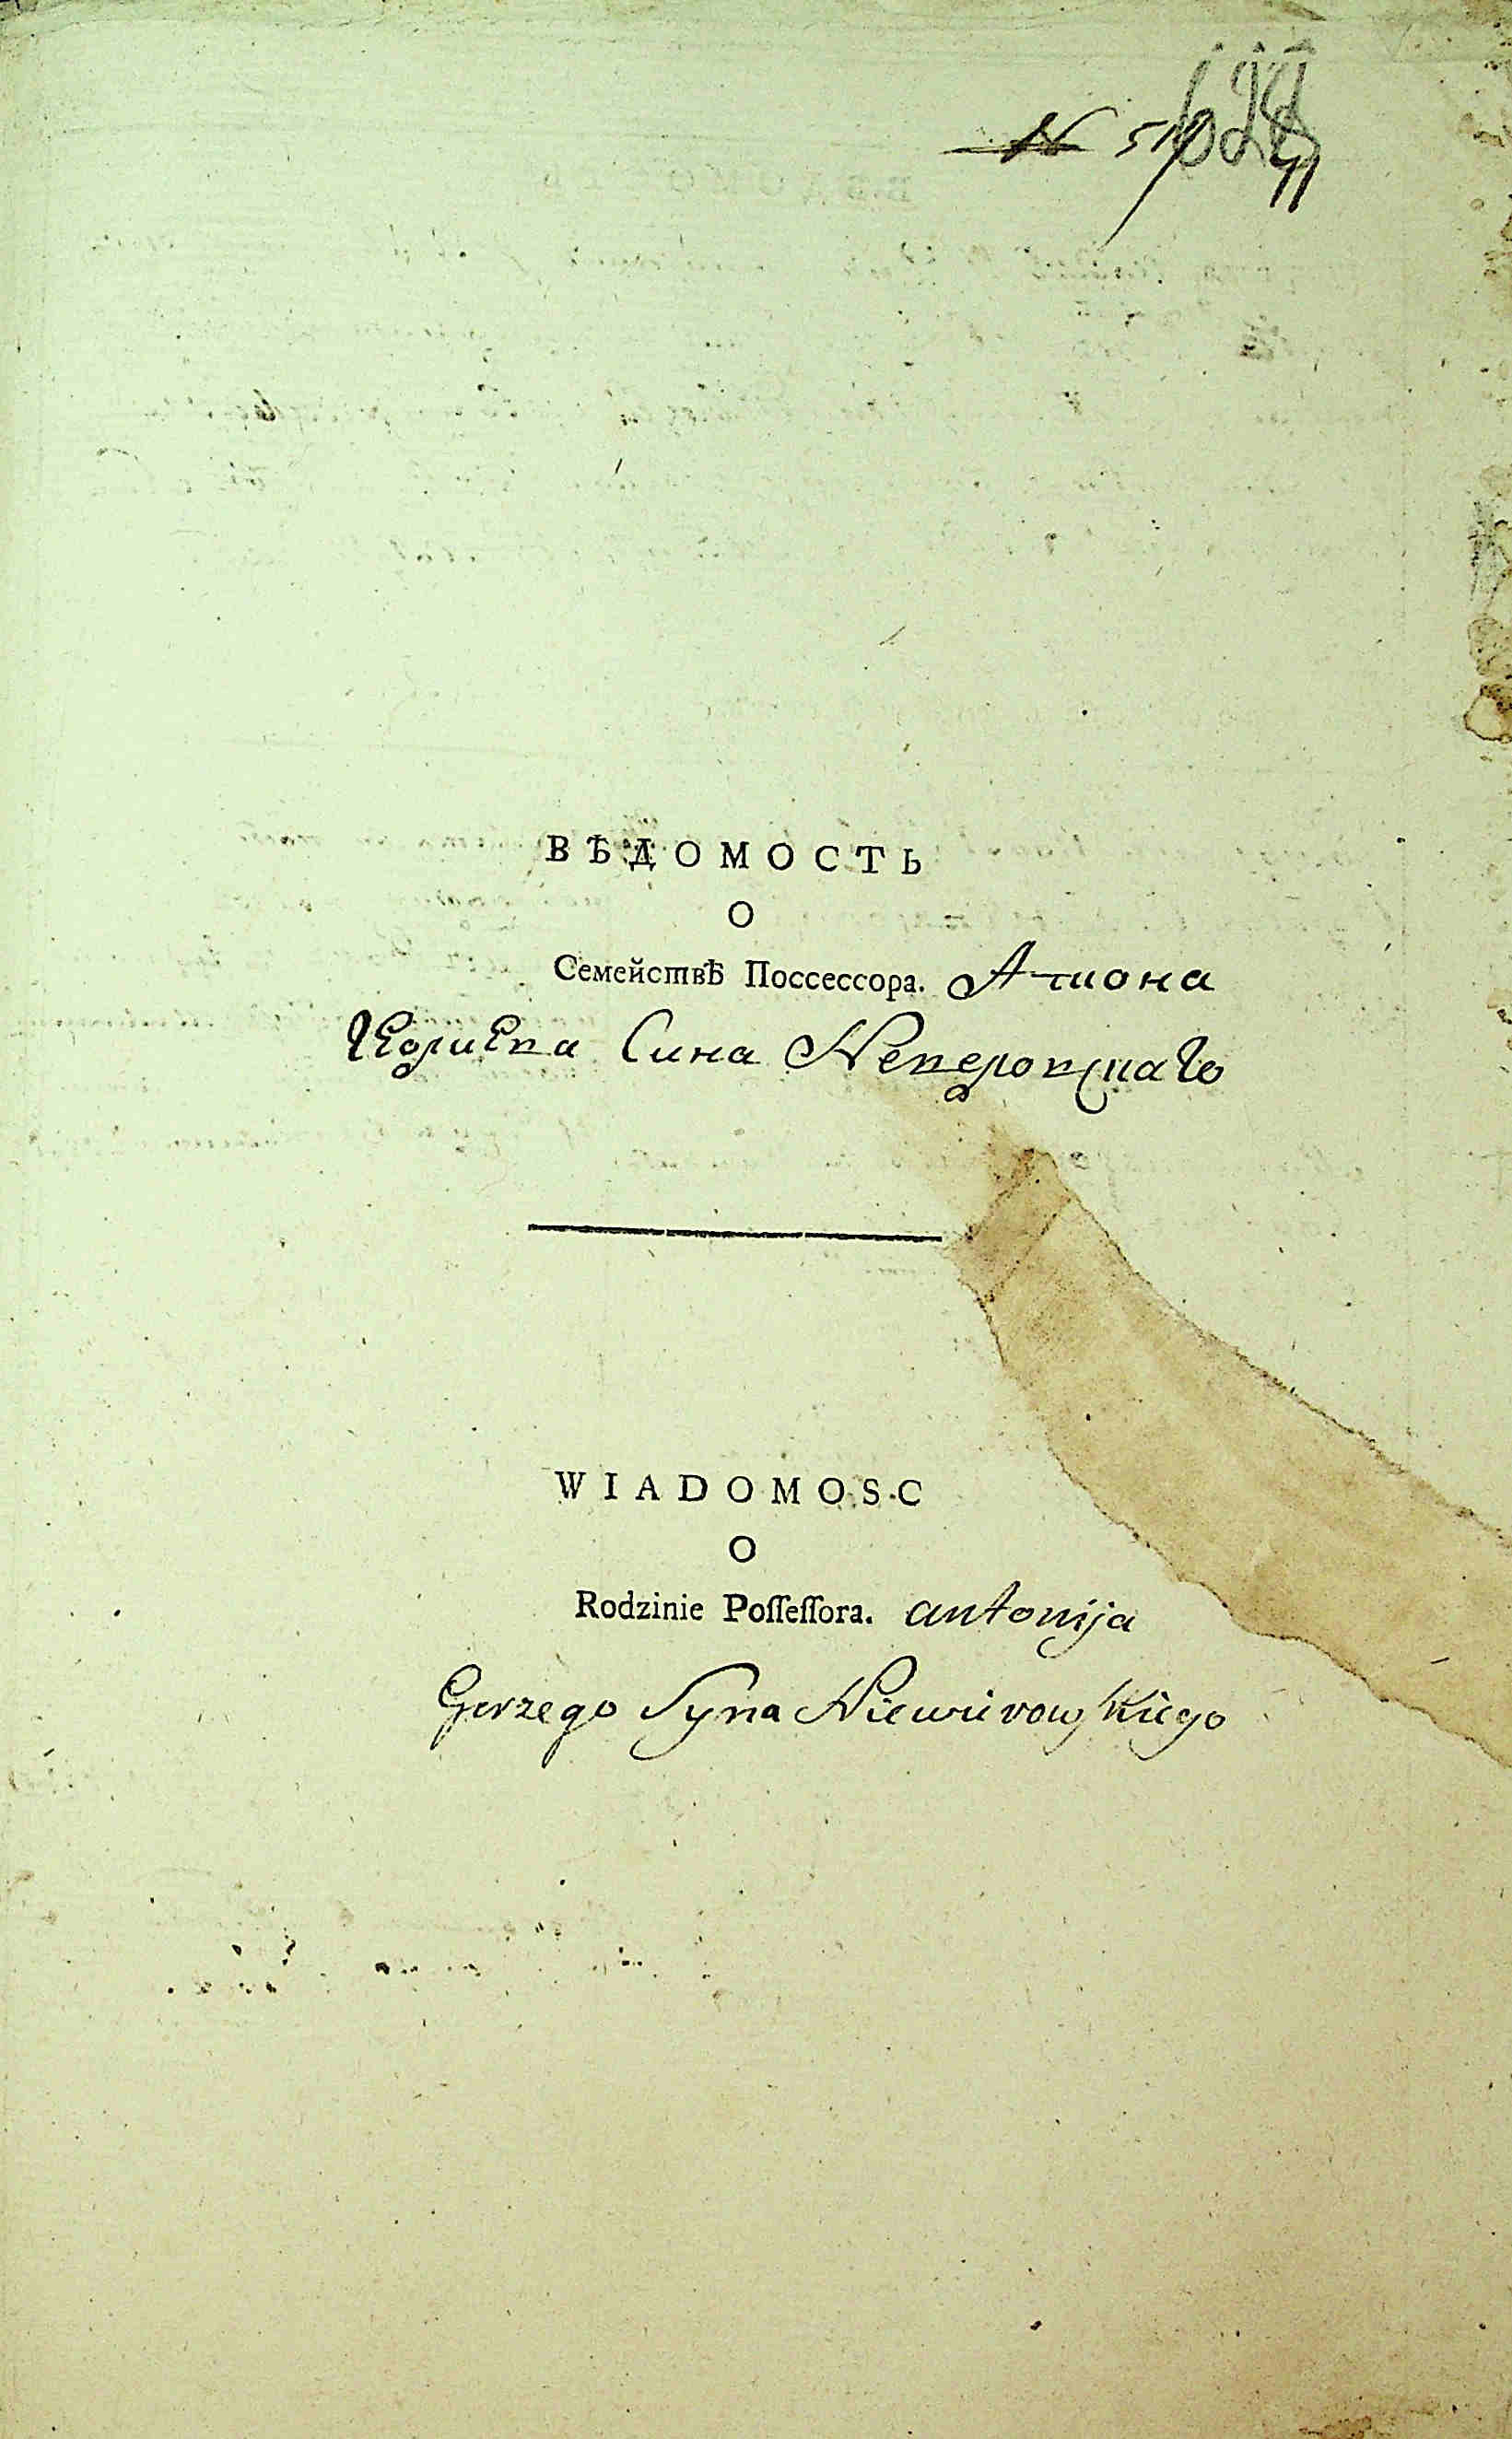 ВѢДОМОСТЬ
О
Семействѣ Поссессора. Антона
сина Неверовскаго
WIADOMOSC
O
Rodzinie Poſſeſſora. antonija
Gerzego Syna Niewirowskiego